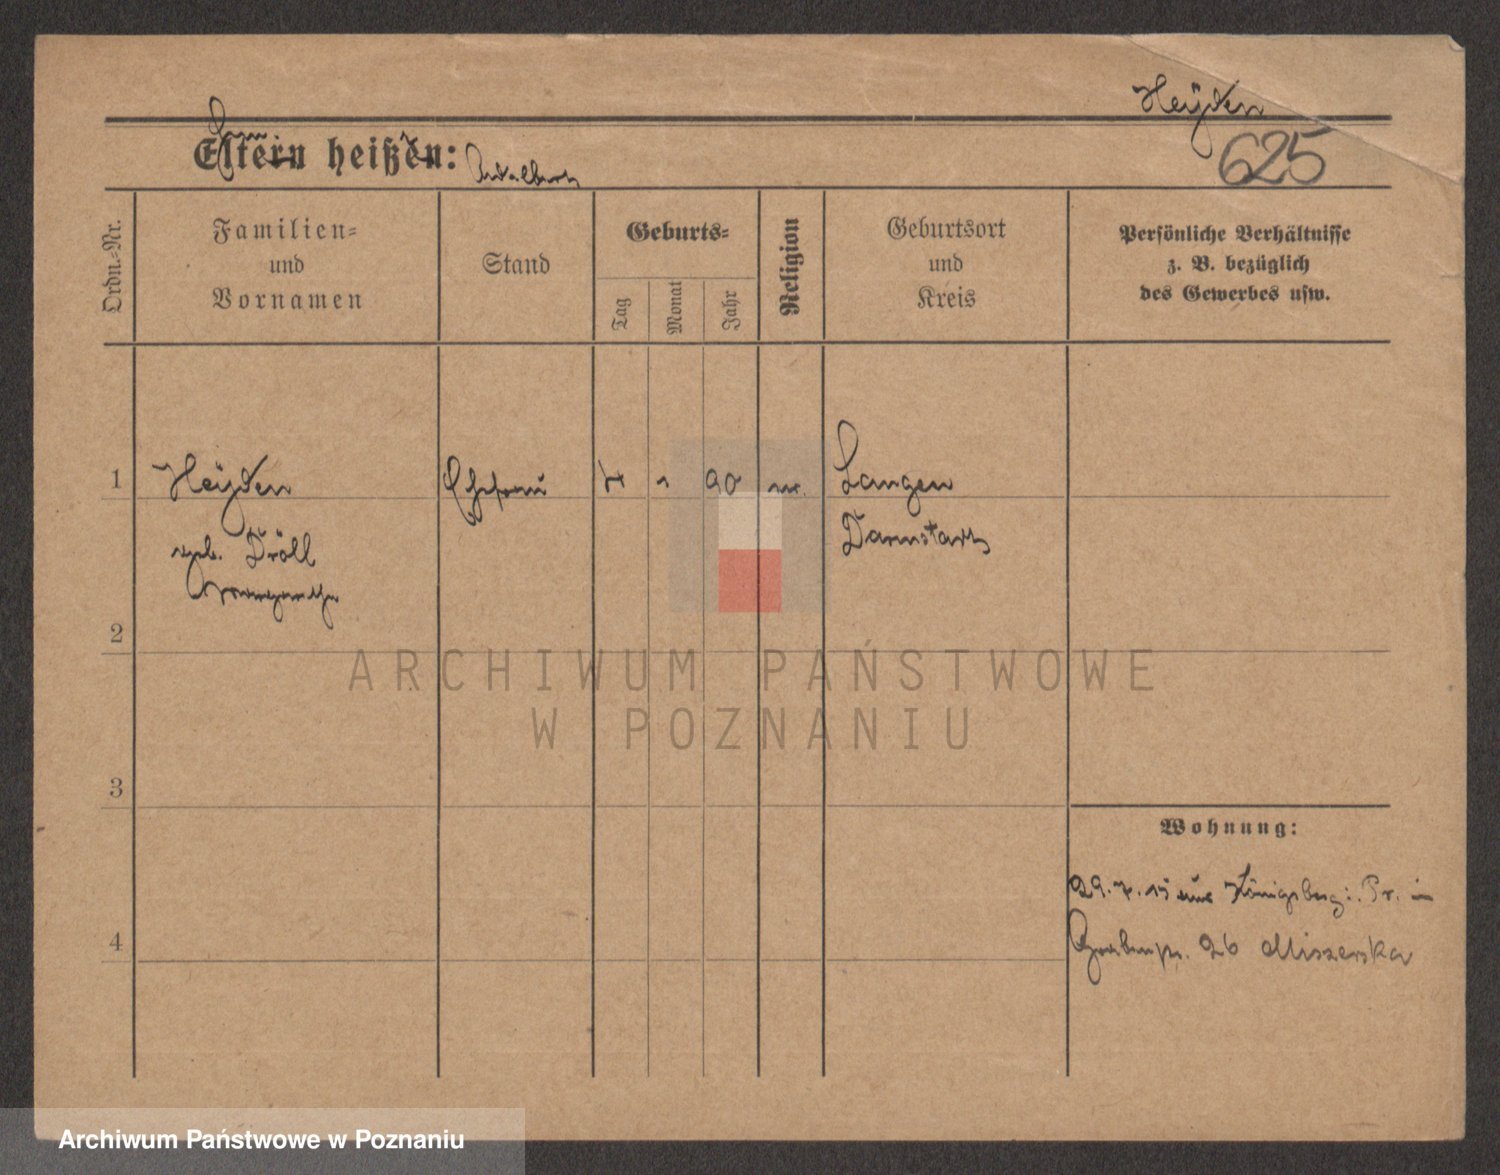 Heyden
625
Eltern heißen:
Adalbert
Ordn.-Nr.
Familien-
und
Vornamen
Stand
Geburts-
Tag
Monat
Jahr
Religion
Geburtsort
und
Kreis
Persönliche Verhältnisse
z. B. bezüglich
des Gewerbes usw.
1
Heyden
geb. Dröll
Margarethe
Ehefrau
90
Langen
Darmstadt
2
ARCHIWUM PAŃSTWOWE
W POZNANIU
3
Wohnung:
29. 7. 15 aus Königsberg i. Pr. in
4
Grabenstr. 26 Miszerska
Archiwum Państwowe w Poznaniu